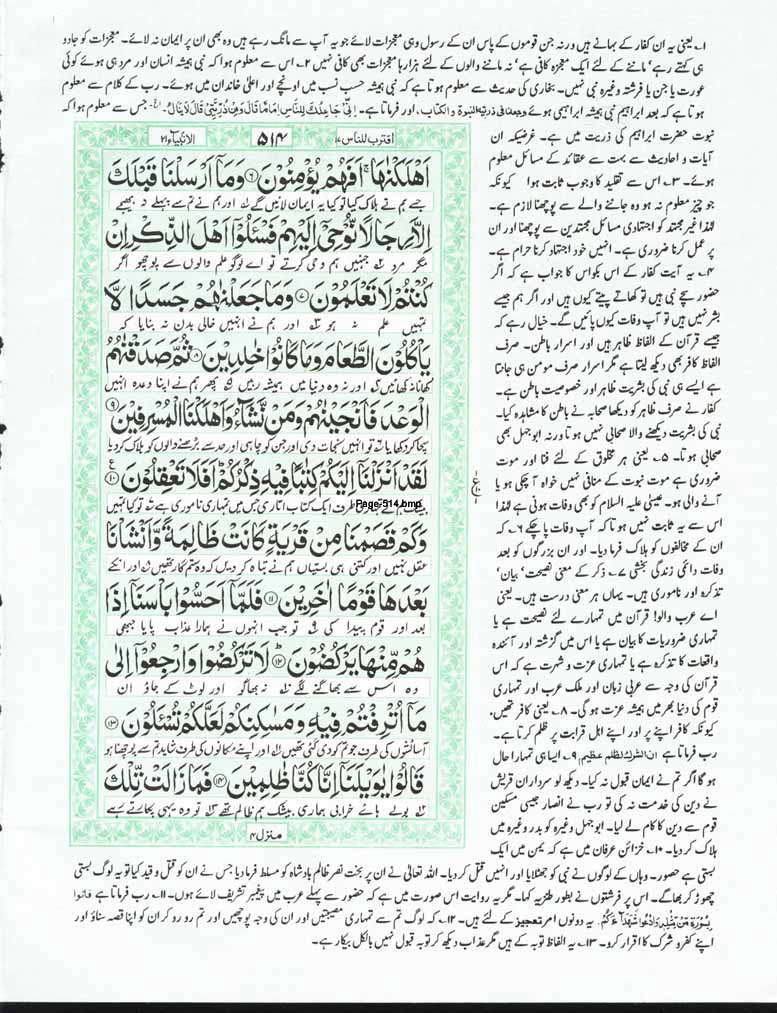 ۱۔ یعنی یہ ان کفار کے بہانے ہیں ورنہ جن قوموں کے پاس ان کے رسول وہی معجزات لائے جو یہ آپ سے مانگ رہے ہیں وہ بھی ان پر ایمان نہ لائے۔ معجزات کو جادو
ہی کہتے رہے، ماننے کے لئے ایک معجزہ کافی ہے، نہ ماننے والوں کے لئے ہزارہا معجزات بھی کافی نہیں ۲۔ اس سے معلوم ہوا کہ نبی ہمیشہ انسان اور مرد ہی ہوئے کوئی
عورت یا جن یا فرشتہ وغیرہ نبی نہیں۔ بخاری کی حدیث سے معلوم ہوتا ہے کہ نبی ہمیشہ حسب نسب میں اونچے اور اعلیٰ خاندان میں ہوئے۔ رب کے کلام سے معلوم
ہوتا ہے کہ بعد ابراہیم نبی ہمیشہ ابراہیمی ہوئے وجعلنا فی ذریتہ النبوۃ والکتاب، اور فرماتا ہے۔ اِنِّیْ جَاعِلُکَ لِلنَّاسِ اِمَامًا قَالَ وَمِنْ ذُرِّیَّتِیْ قَالَ لَا یَنَالُ الخ۔ جس سے معلوم ہوا کہ
اقترب للناس ۱۷
۵۱۴
الانبیاء ۲۱
اَهْلَكْنٰهَا ۚ اَفَهُمْ يُؤْمِنُوْنَ ۶ وَمَآ اَرْسَلْنَا قَبْلَكَ
جسے ہم نے ہلاک کیا تو کیا یہ ایمان لائیں گے اور ہم نے تم سے پہلے نہ بھیجے
اِلَّا رِجَالًا نُّوْحِيْٓ اِلَيْهِمْ فَسْـَٔلُوْٓا اَهْلَ الذِّكْرِ اِنْ
مگر مرد جنہیں ہم وحی کرتے تو اے لوگو علم والوں سے پوچھو اگر
كُنْتُمْ لَا تَعْلَمُوْنَ ۷ وَمَا جَعَلْنٰهُمْ جَسَدًا لَّا
تمہیں علم نہ ہو اور ہم نے انہیں خالی بدن نہ بنایا کہ
يَاْكُلُوْنَ الطَّعَامَ وَمَا كَانُوْا خٰلِدِيْنَ ۸ ثُمَّ صَدَقْنٰهُمُ
کھانا نہ کھائیں اور نہ وہ دنیا میں ہمیشہ رہیں پھر ہم نے اپنا وعدہ انہیں
الْوَعْدَ فَاَنْجَيْنٰهُمْ وَمَنْ نَّشَآءُ وَاَهْلَكْنَا الْمُسْرِفِيْنَ ۹
سچا کر دکھایا تو انہیں نجات دی اور جن کو چاہی اور حد سے بڑھنے والوں کو ہلاک کر دیا
لَقَدْ اَنْزَلْنَآ اِلَيْكُمْ كِتٰبًا فِيْهِ ذِكْرُكُمْ ۭ اَفَلَا تَعْقِلُوْنَ ۱۰ ع
بیشک ہم نے تمہاری طرف ایک کتاب اتاری جس میں تمہاری ناموری ہے تو کیا تمہیں
Page-514.bmp
وَكَمْ قَصَمْنَا مِنْ قَرْيَةٍ كَانَتْ ظَالِمَةً وَّاَنْشَاْنَا
عقل نہیں اور کتنی ہی بستیاں ہم نے تباہ کر دیں کہ وہ ستم کار تھیں اور انکے
بَعْدَهَا قَوْمًا اٰخَرِيْنَ ۱۱ فَلَمَّآ اَحَسُّوْا بَاْسَنَآ اِذَا
بعد اور قوم پیدا کی تو جب انہوں نے ہمارا عذاب پایا جبھی
هُمْ مِّنْهَا يَرْكُضُوْنَ ۱۲ لَا تَرْكُضُوْا وَارْجِعُوْٓا اِلٰى
وہ اس سے بھاگنے لگے نہ بھاگو اور لوٹ کے جاؤ ان
مَآ اُتْرِفْتُمْ فِيْهِ وَمَسٰكِنِكُمْ لَعَلَّكُمْ تُسْـَٔلُوْنَ ۱۳
آسائشوں کی طرف جو تم کو دی گئی تھیں اور اپنے مکانوں کی طرف شاید تم سے پوچھنا ہو
قَالُوْا يٰوَيْلَنَآ اِنَّا كُنَّا ظٰلِمِيْنَ ۱۴ فَمَا زَالَتْ تِّلْكَ
بولے ہائے خرابی ہماری بیشک ہم ظالم تھے تو وہ یہی پکارتے رہے
منزل ۴
نبوت حضرت ابراہیم کی ذریت میں ہے۔ غرضیکہ ان
آیات و احادیث سے بہت سے عقائد کے مسائل معلوم
ہوئے۔ ۳۔ اس سے تقلید کا وجوب ثابت ہوا کیونکہ
جو چیز معلوم نہ ہو وہ جاننے والے سے پوچھنا لازم ہے۔
لہٰذا غیر مجتہد کو اجتہادی مسائل مجتہدین سے پوچھنا اور ان
پر عمل کرنا ضروری ہے۔ انہیں خود اجتہاد کرنا حرام ہے۔
۴۔ یہ آیت کفار کے اس بکواس کا جواب ہے کہ اگر
حضور سچے نبی ہیں تو کھاتے پیتے کیوں ہیں اور اگر ہم جیسے
بشر نہیں ہیں تو آپ وفات کیوں پائیں گے۔ خیال رہے کہ
جیسے قرآن کے الفاظ ظاہر ہیں اور اسرار باطن۔ صرف
الفاظ کافر بھی دیکھ لیتا ہے مگر اسرار صرف مومن ہی جانتا
ہے ایسے ہی نبی کی بشریت ظاہر اور خصوصیت باطن ہے۔
کفار نے صرف ظاہر کو دیکھا صحابہ نے باطن کا مشاہدہ کیا۔
نبی کی بشریت دیکھنے والا صحابی نہیں ہوتا ورنہ ابوجہل بھی
صحابی ہوتا۔ ۵۔ یعنی ہر مخلوق کے لئے فنا اور موت
ضروری ہے موت نبوت کے منافی نہیں خواہ آ چکی ہو یا
آنے والی ہو۔ عیسیٰ علیہ السلام کو بھی وفات ہونی ہے لہٰذا
اس سے یہ ثابت نہیں ہوتا کہ آپ وفات پا چکے ۶۔ کہ
ان کے مخالفوں کو ہلاک فرما دیا۔ اور ان بزرگوں کو بعد
وفات دائمی زندگی بخشی ۷۔ ذکر کے معنی نصیحت، بیان،
تذکرہ اور ناموری ہیں۔ یہاں ہر معنی درست ہیں۔ یعنی
اے عرب والو! قرآن میں تمہارے لئے نصیحت ہے یا
تمہاری ضروریات کا بیان ہے یا اس میں گزشتہ اور آئندہ
واقعات کا تذکرہ ہے یا تمہاری عزت و شہرت ہے کہ اس
قرآن کی وجہ سے عربی زبان اور ملک عرب اور تمہاری
قوم کی دنیا بھر میں ہمیشہ عزت ہو گی۔ ۸۔ یعنی کافر تھیں،
کیونکہ کافر اپنے پر اور اپنے اہل قرابت پر ظلم کرتا ہے۔
رب فرماتا ہے ان الشرک لظلم عظیم، ۹۔ ایسا ہی تمہارا حال
ہو گا اگر تم نے ایمان قبول نہ کیا۔ دیکھ لو سرداران قریش
نے دین کی خدمت نہ کی تو رب نے انصار جیسی مسکین
قوم سے دین کا کام لے لیا۔ ابوجہل وغیرہ کو بدر وغیرہ میں
ہلاک کر دیا۔ ۱۰۔ خزائن عرفان میں ہے کہ یمن میں ایک
بستی ہے حصور۔ وہاں کے لوگوں نے نبی کو جھٹلایا اور انہیں قتل کر دیا۔ اللہ تعالیٰ نے ان پر بخت نصر ظالم بادشاہ کو مسلط فرما دیا جس نے ان کو قتل و قید کیا تو یہ لوگ بستی
چھوڑ کر بھاگے۔ اس پر فرشتوں نے بطور طنز یہ کہا۔ مگر یہ روایت اس صورت میں ہے کہ حضور سے پہلے عرب میں پیغمبر تشریف لائے ہوں۔ ۱۱۔ رب فرماتا ہے فَاتُوْا
بِسُوْرَةٍ مِّنْ مِّثْلِهٖ وَادْعُوْا شُهَدَآءَكُمْ۔ یہ دونوں امر تعجیز کے لئے ہیں۔ ۱۲۔ کہ لوگ تم سے تمہاری مصیبتیں اور ان کی وجہ پوچھیں اور تم رو رو کر ان کو اپنا قصہ سناؤ اور
اپنے کفر و شرک کا اقرار کرو۔ ۱۳۔ یہ الفاظ توبہ کے ہیں مگر عذاب دیکھ کر توبہ قبول نہیں بالکل بیکار ہے۔